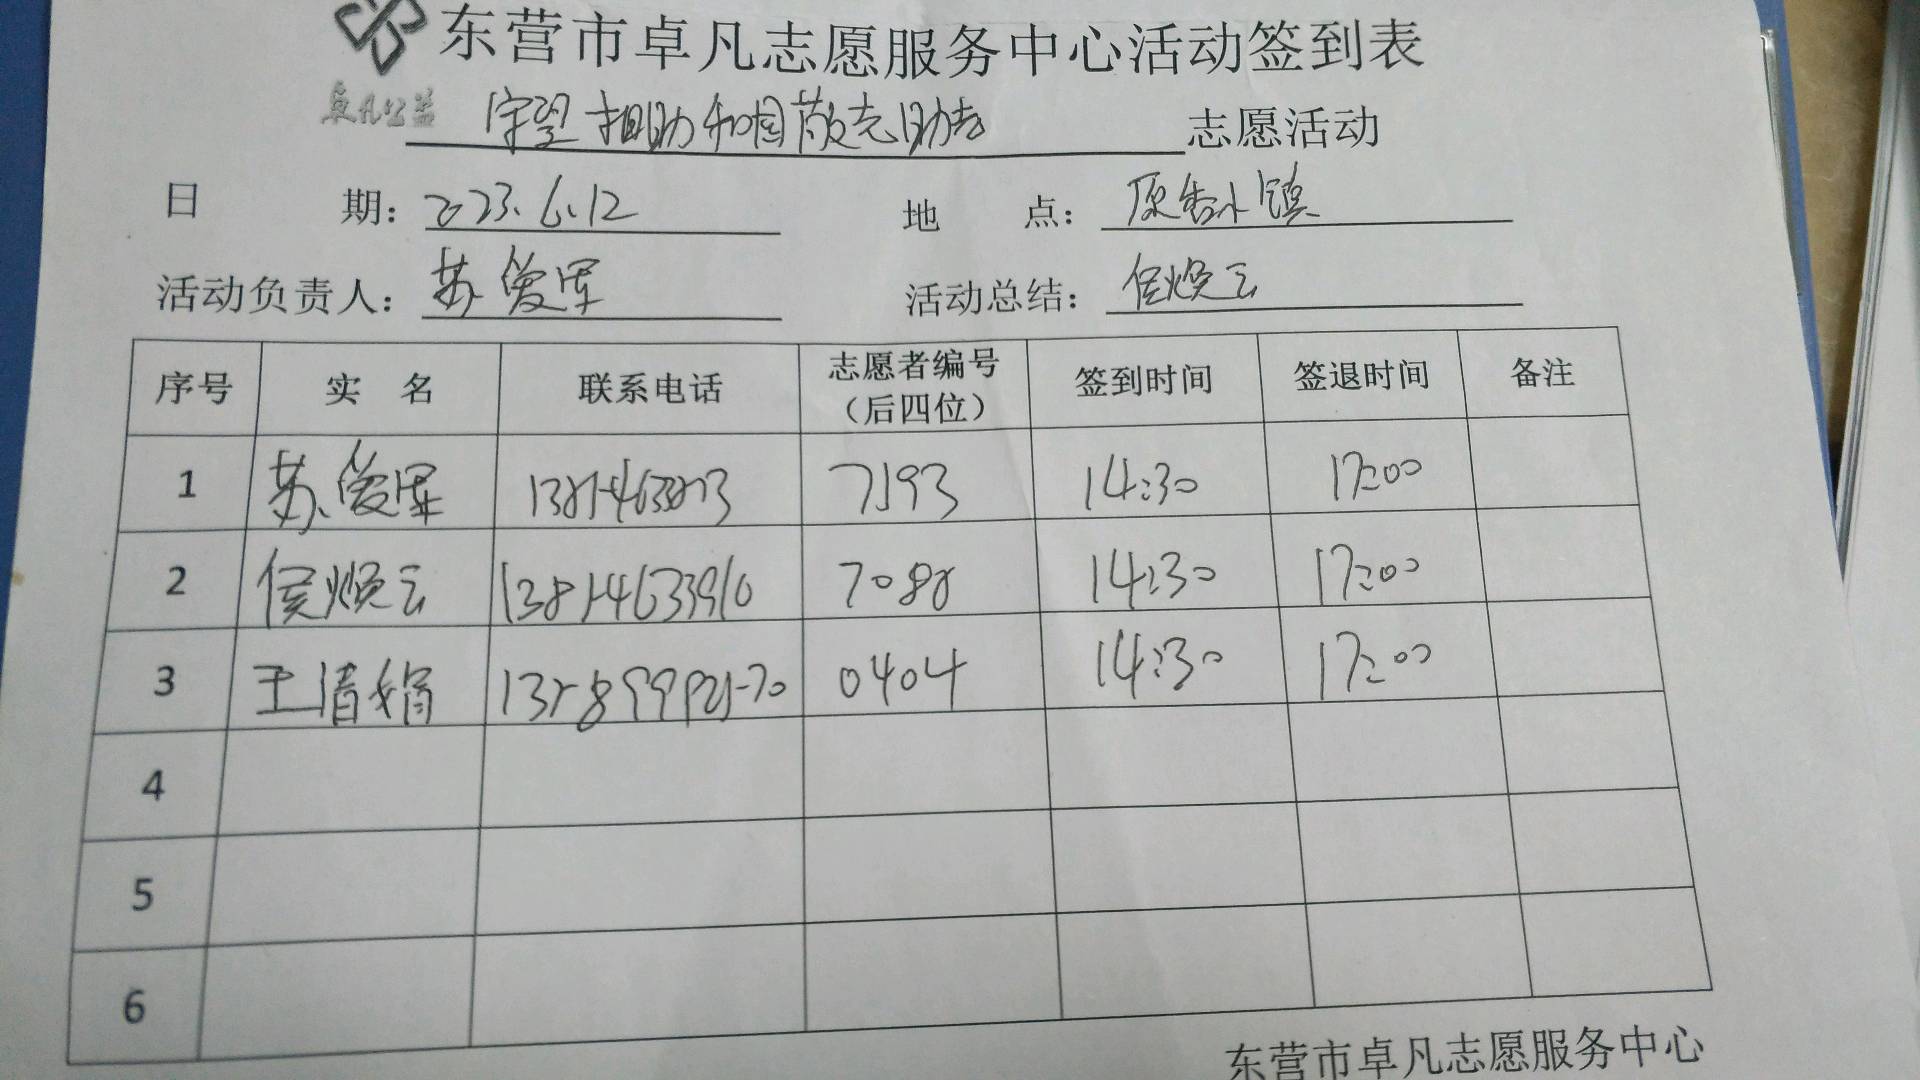 东营市卓凡志愿服务中心活动签到表
卓凡公益
守望相助和园敬老助老 志愿活动
日 期：2023.6.12 地 点：原香小镇
活动负责人：苏爱军 活动总结：侯焕云
序号 实 名 联系电话 志愿者编号（后四位） 签到时间 签退时间 备注
1 苏爱军 7193 14:30 17:00
2 侯焕云 7088 14:30 17:00
3 王清娟 0404 14:30 17:00
4
5
6
东营市卓凡志愿服务中心